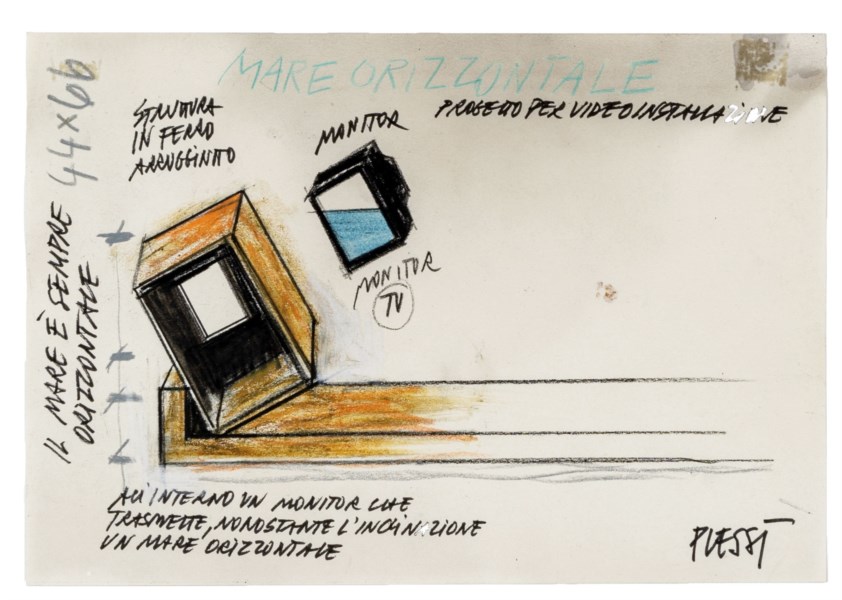 MARE ORIZZONTALE
PROGETTO PER VIDEOINSTALLAZIONE
44x66
STRUTTURA
IN FERRO
ARRUGGINITO
MONITOR
MONITOR
TV
IL MARE È SEMPRE
ORIZZONTALE
ALL'INTERNO UN MONITOR CHE
TRASMETTE, NONOSTANTE L'INCLINAZIONE
UN MARE ORIZZONTALE
PLESSI